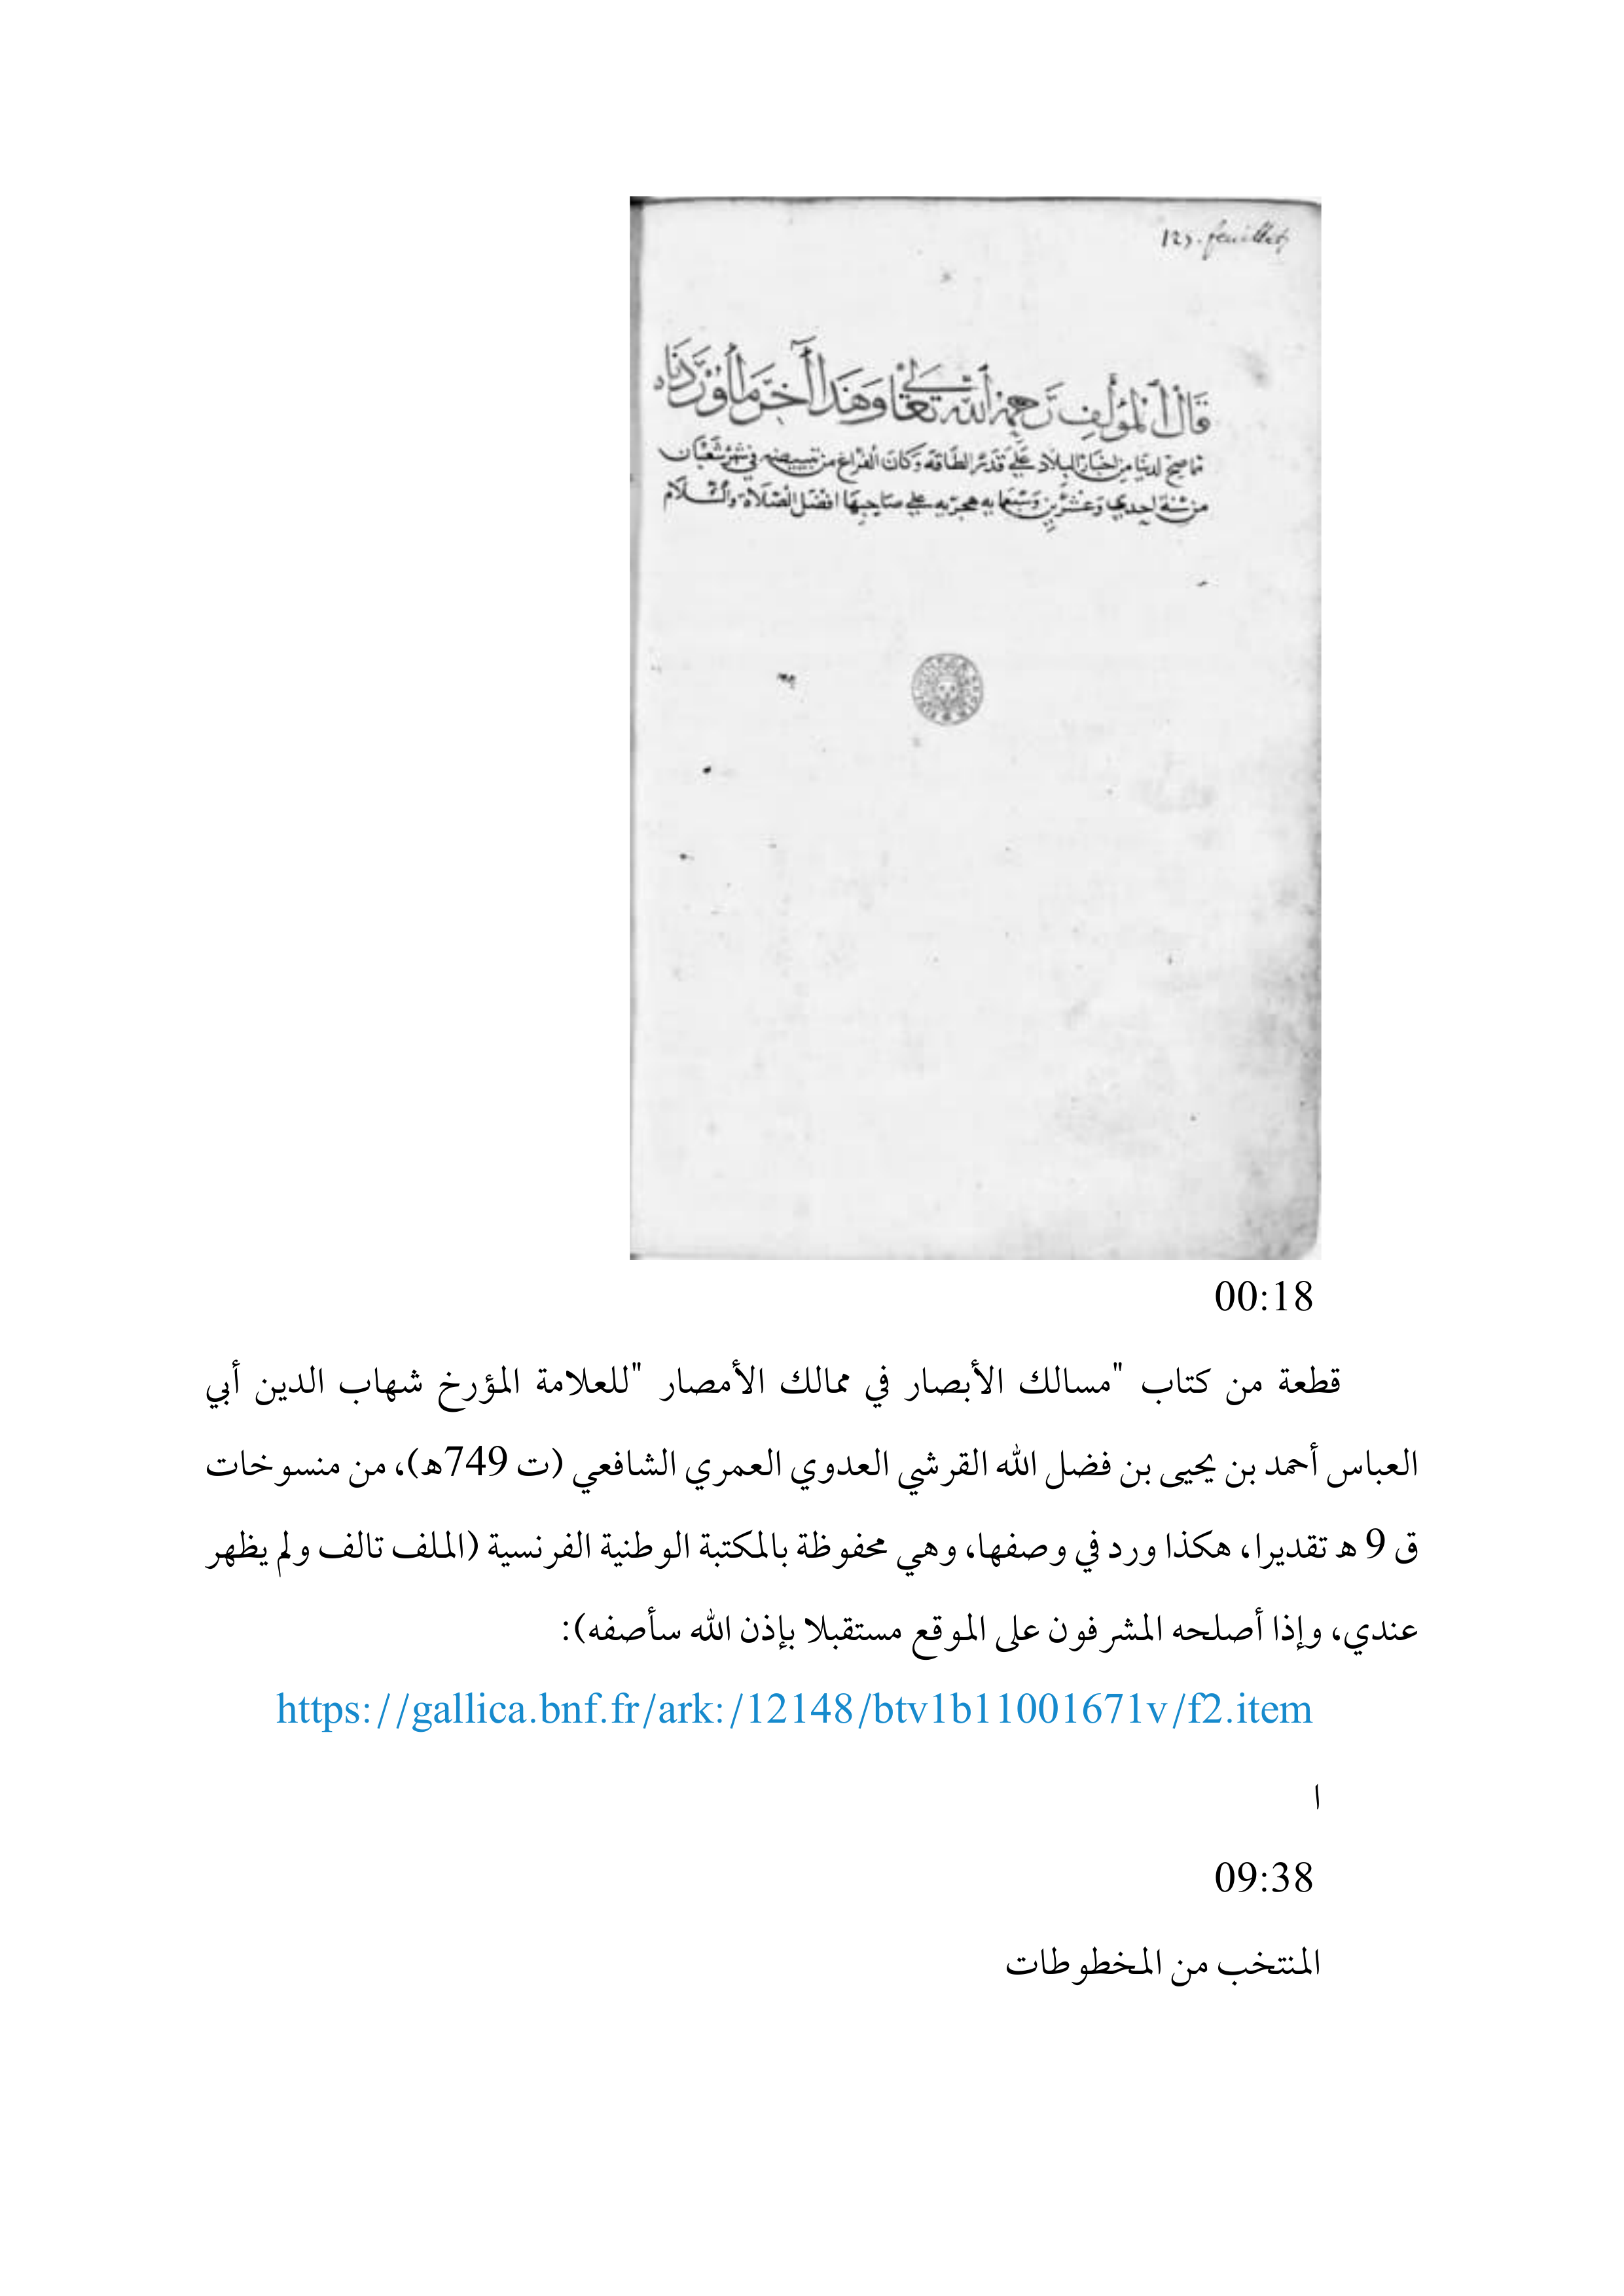 125. feuillets
قَالَ الْمُؤَلِفِ رَحِمهُ اللَّه تَعَالَى وَهَذَا آخَرَ مَا أَوْرَدْنَاه
مما صح لدينا من اخبار البلاد على قدر الطاقه وكان الفراغ من تبييضه في شهر شعبان
من سنة احدي وعشرين وسبعمايه هجريه علي صاحبها افضل الصلاة والسلام
00:18
قطعة من كتاب "مسالك الأبصار في ممالك الأمصار "للعلامة المؤرخ شهاب الدين أبي
العباس أحمد بن يحيى بن فضل الله القرشي العدوي العمري الشافعي (ت 749هـ)، من منسوخات
ق 9 هـ تقديرا، هكذا ورد في وصفها، وهي محفوظة بالمكتبة الوطنية الفرنسية (الملف تالف ولم يظهر
عندي، وإذا أصلحه المشرفون على الموقع مستقبلا بإذن الله سأصفه):
https://gallica.bnf.fr/ark:/12148/btv1b11001671v/f2.item
ا
09:38
المنتخب من المخطوطات